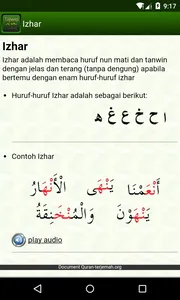 9:17
Izhar
Izhar
Izhar adalah membaca huruf nun mati dan tanwin
dengan jelas dan terang (tanpa dengung) apabila
bertemu dengan enam huruf-huruf izhar
• Huruf-huruf Izhar adalah sebagai berikut:
ا ح خ ع غ ه
• Contoh Izhar
أَنْعَمْنَا يَنْهَى الْأَنْهَارُ
يَنْهَوْنَ وَالْمُنْخَنِقَةُ
play audio
Document Quran-terjemah.org